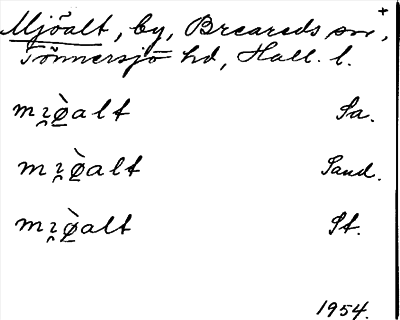 +
Mjöalt, by, Breareds sn,
Tönnersjö hd, Hall. l.
mı̯ø̀alt Sa.
mı̯ø̀alt Sand.
mı̯ø̀alt St.
1954.